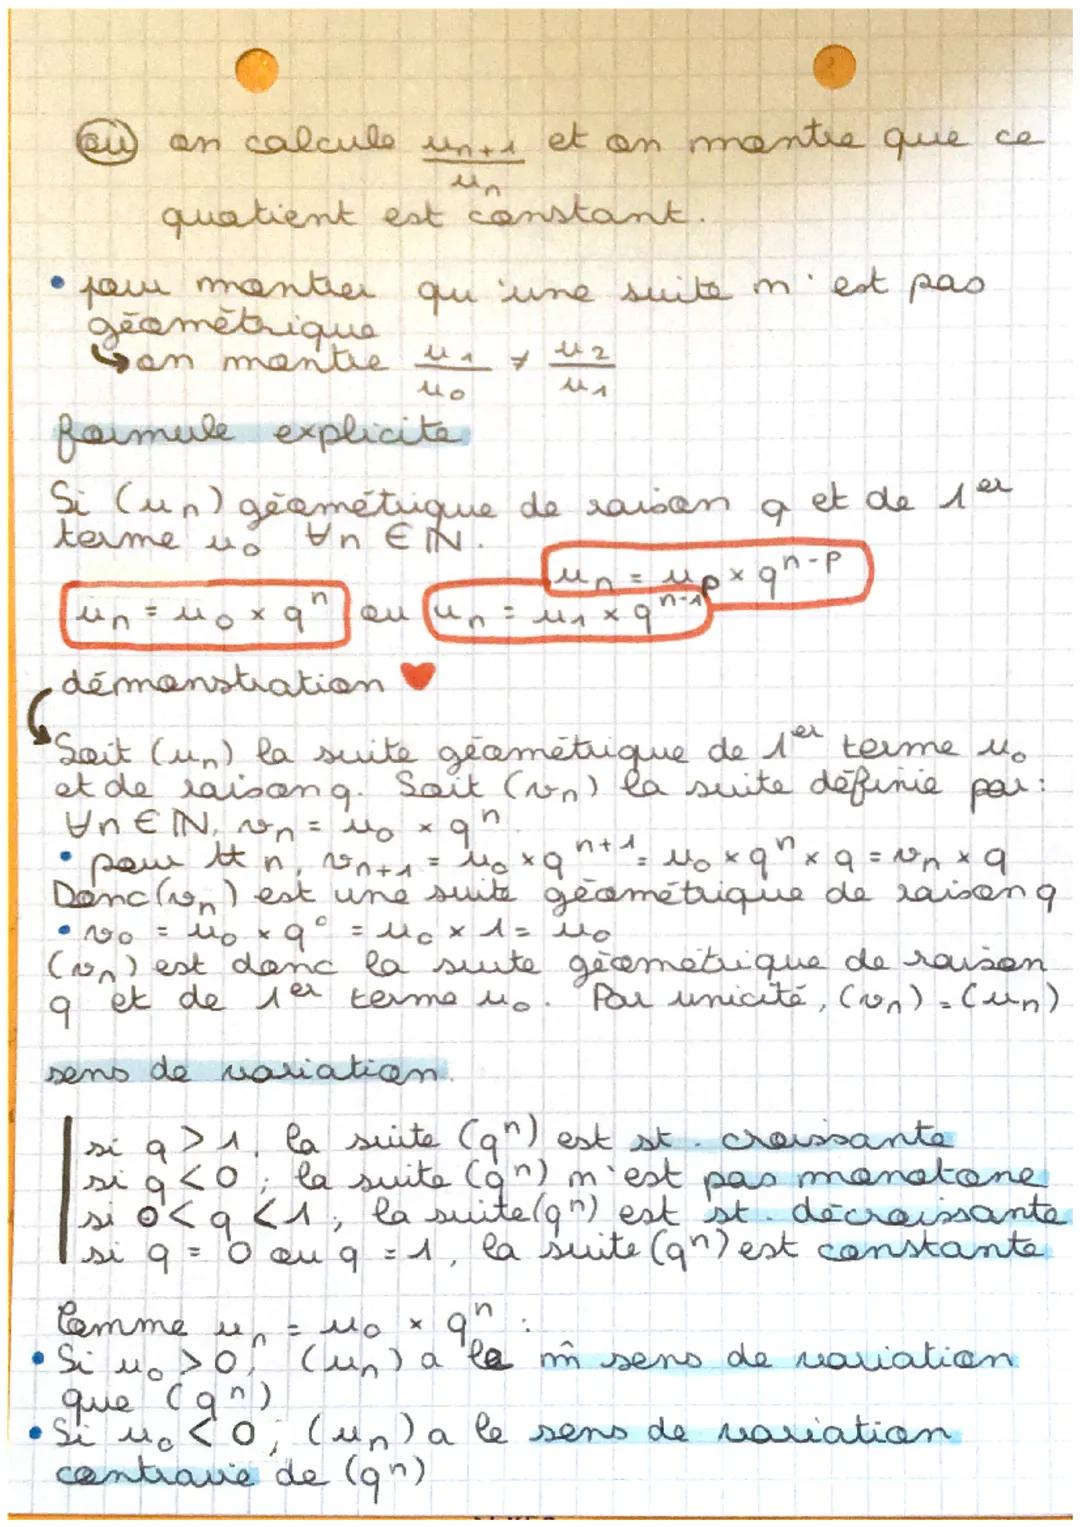 ou on calcule u_{n+1}/u_n et on montre que ce
quotient est constant.
• pour montrer qu'une suite n'est pas
géométrique
↳ on montre u_1/u_0 ≠ u_2/u_1
formule explicite
Si (u_n) géométrique de raison q et de 1er
terme u_0 ∀n ∈ ℕ.
u_n = u_p × q^{n-p}
u_n = u_0 × q^n ou u_n = u_1 × q^{n-1}
démonstration ♥
Soit (u_n) la suite géométrique de 1er terme u_0
et de raison q. Soit (v_n) la suite définie par :
∀n ∈ ℕ, v_n = u_0 × q^n
• pour tt n, v_{n+1} = u_0 × q^{n+1} = u_0 × q^n × q = v_n × q
Donc (v_n) est une suite géométrique de raison q
• v_0 = u_0 × q^0 = u_0 × 1 = u_0
(v_n) est donc la suite géométrique de raison
q et de 1er terme u_0. Par unicité, (v_n) = (u_n)
sens de variation.
si q > 1, la suite (q^n) est st. croissante
si q < 0 ; la suite (q^n) n'est pas monotone
si 0 < q < 1 ; la suite (q^n) est st. décroissante
si q = 0 ou q = 1, la suite (q^n) est constante
Comme u_n = u_0 × q^n :
• Si u_0 > 0, (u_n) a le m̂ sens de variation
que (q^n)
• Si u_0 < 0 ; (u_n) a le sens de variation
contraire de (q^n)